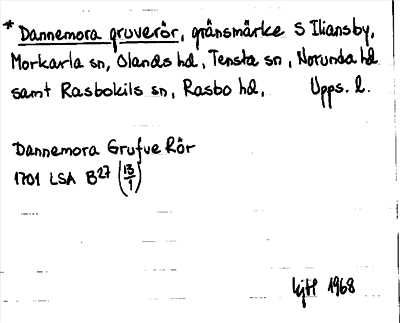 * Dannemora gruverör, gränsmärke S Iliansby,
Morkarla sn, Olands hd, Tensta sn, Norunda hd
samt Rasbokils sn, Rasbo hd, Upps. l.
Dannemora Grufve Rör
1701 LSA B27 (13/1)
1968